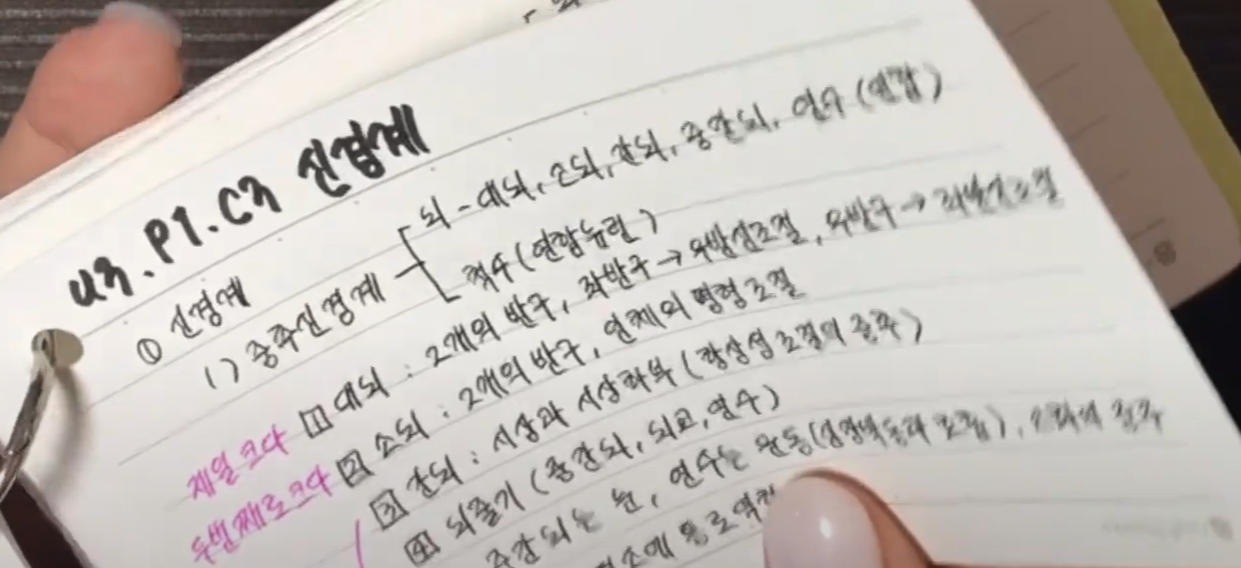 U3. P1. C3 신경계
① 신경계
1) 중추신경계
뇌 - 대뇌, 소뇌, 간뇌, 중간뇌, 연수 (연합)
척수 (연합뉴런)
제일 크다 1 대뇌 : 2개의 반구, 좌반구 → 우반신조절, 우반구 → 좌반신조절
두번째로 크다 2 소뇌 : 2개의 반구, 인체의 평형 조절
3 간뇌 : 시상과 시상하부 (항상성 조절의 중추)
4 뇌줄기 (중간뇌, 뇌교, 연수)
중간뇌는 눈, 연수는 운동(심장박동과 호흡), 소화의 중추
통로역할